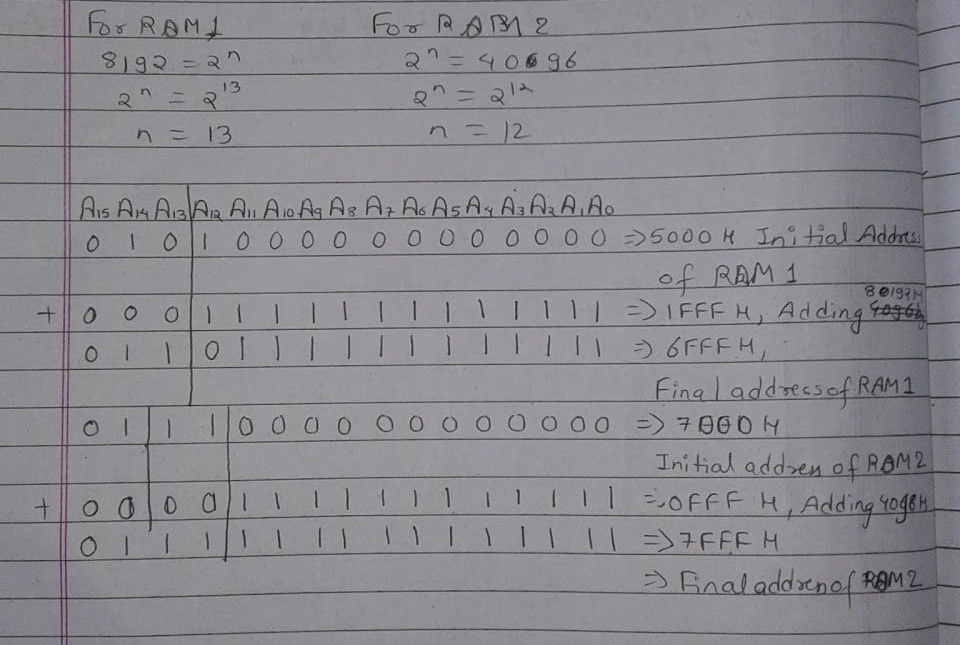 For RAM1 For RAM 2
8192 = 2ⁿ 2ⁿ = 4096
2ⁿ = 2¹³ 2ⁿ = 2¹²
n = 13 n = 12
A15 A14 A13 A12 A11 A10 A9 A8 A7 A6 A5 A4 A3 A2 A1 A0
0 1 0 1 0 0 0 0 0 0 0 0 0 0 0 0 => 5000 H Initial Address
of RAM 1
8192H
+ 0 0 0 1 1 1 1 1 1 1 1 1 1 1 1 1 => 1FFF H, Adding
0 1 1 0 1 1 1 1 1 1 1 1 1 1 1 1 => 6FFF H,
Final address of RAM1
0 1 1 1 0 0 0 0 0 0 0 0 0 0 0 0 => 7000 H
Initial addres of ROM2
+ 0 0 0 0 1 1 1 1 1 1 1 1 1 1 1 1 => 0FFF H, Adding 4096H
0 1 1 1 1 1 1 1 1 1 1 1 1 1 1 1 => 7FFF H
=> Final addres of ROM2